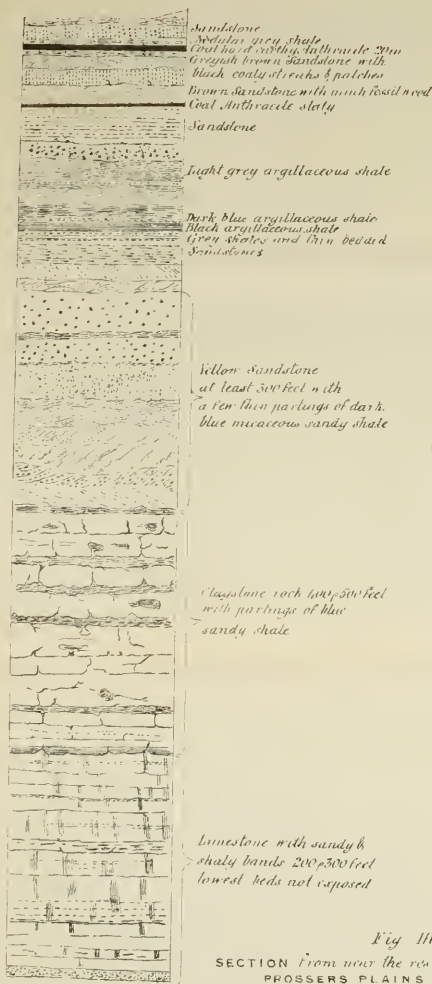 Sandstone
Nodular grey shale
Coal hard earthy Anthracite 20in
Greyish brown Sandstone with
black coaly streaks & patches
Brown Sandstone with much fossil wood
Coal Anthracite slaty
Sandstone
Light grey argillaceous shale
Dark blue argillaceous shale
Black argillaceous shale
Grey shales and thin bedded
Sandstones
Yellow Sandstone
at least 300 feet with
a few thin partings of dark
blue micaceous sandy shale
Claystone rock 500 feet
with partings of blue
sandy shale
Limestone with sandy &
shaly bands 200 300 feet
lowest beds not exposed
Fig III
SECTION from near the
PROSSERS PLAINS